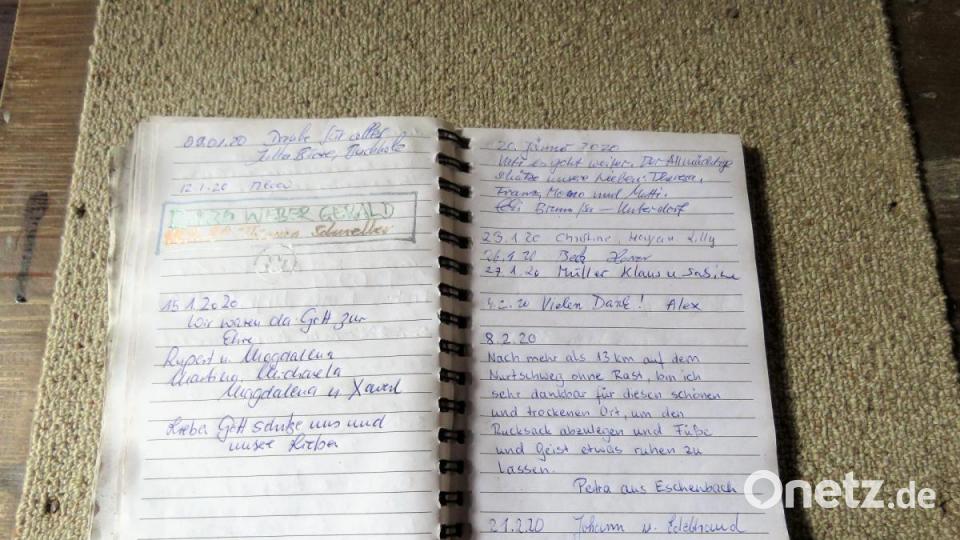 09.01.20 Danke für alles
12.1.20
WEBER GERALD
15.1.2020
Wir waren da Gott zur
Ehre
Rupert u. Magdalena
Martina Michaela
Magdalena u. Xaver
Lieber Gott schütze uns und
unsere Lieben
20. Jänner 2020
Vati es geht weiter. Der Allmächtige
schütze unsere Lieben: Theresa,
Franz, Memo und Mutti.
23.1.20 Christine, Lilly
26.1.20 Beck
27.1.20 Müller Klaus u Sabine
4.2.20 Vielen Dank! Alex
8.2.20
Nach mehr als 13 km auf dem
Nurtschweg ohne Rast, bin ich
sehr dankbar für diesen schönen
und trockenen Ort, um den
Rucksack abzulegen und Füße
und Geist etwas ruhen zu
lassen.
Petra aus Eschenbach
21.2.20 Johann u.
Onetz.de